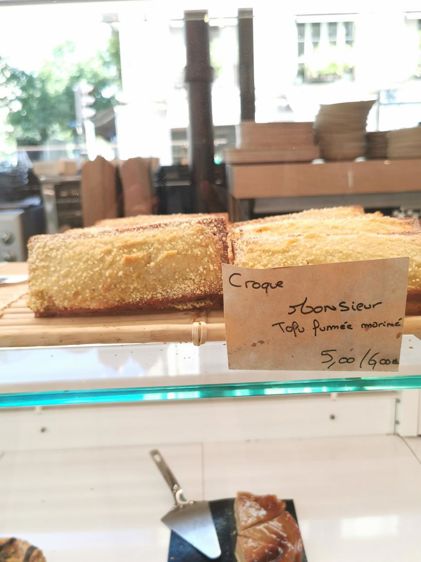 Croque
Monsieur
Tofu fumée mariné
5,00/6,00€